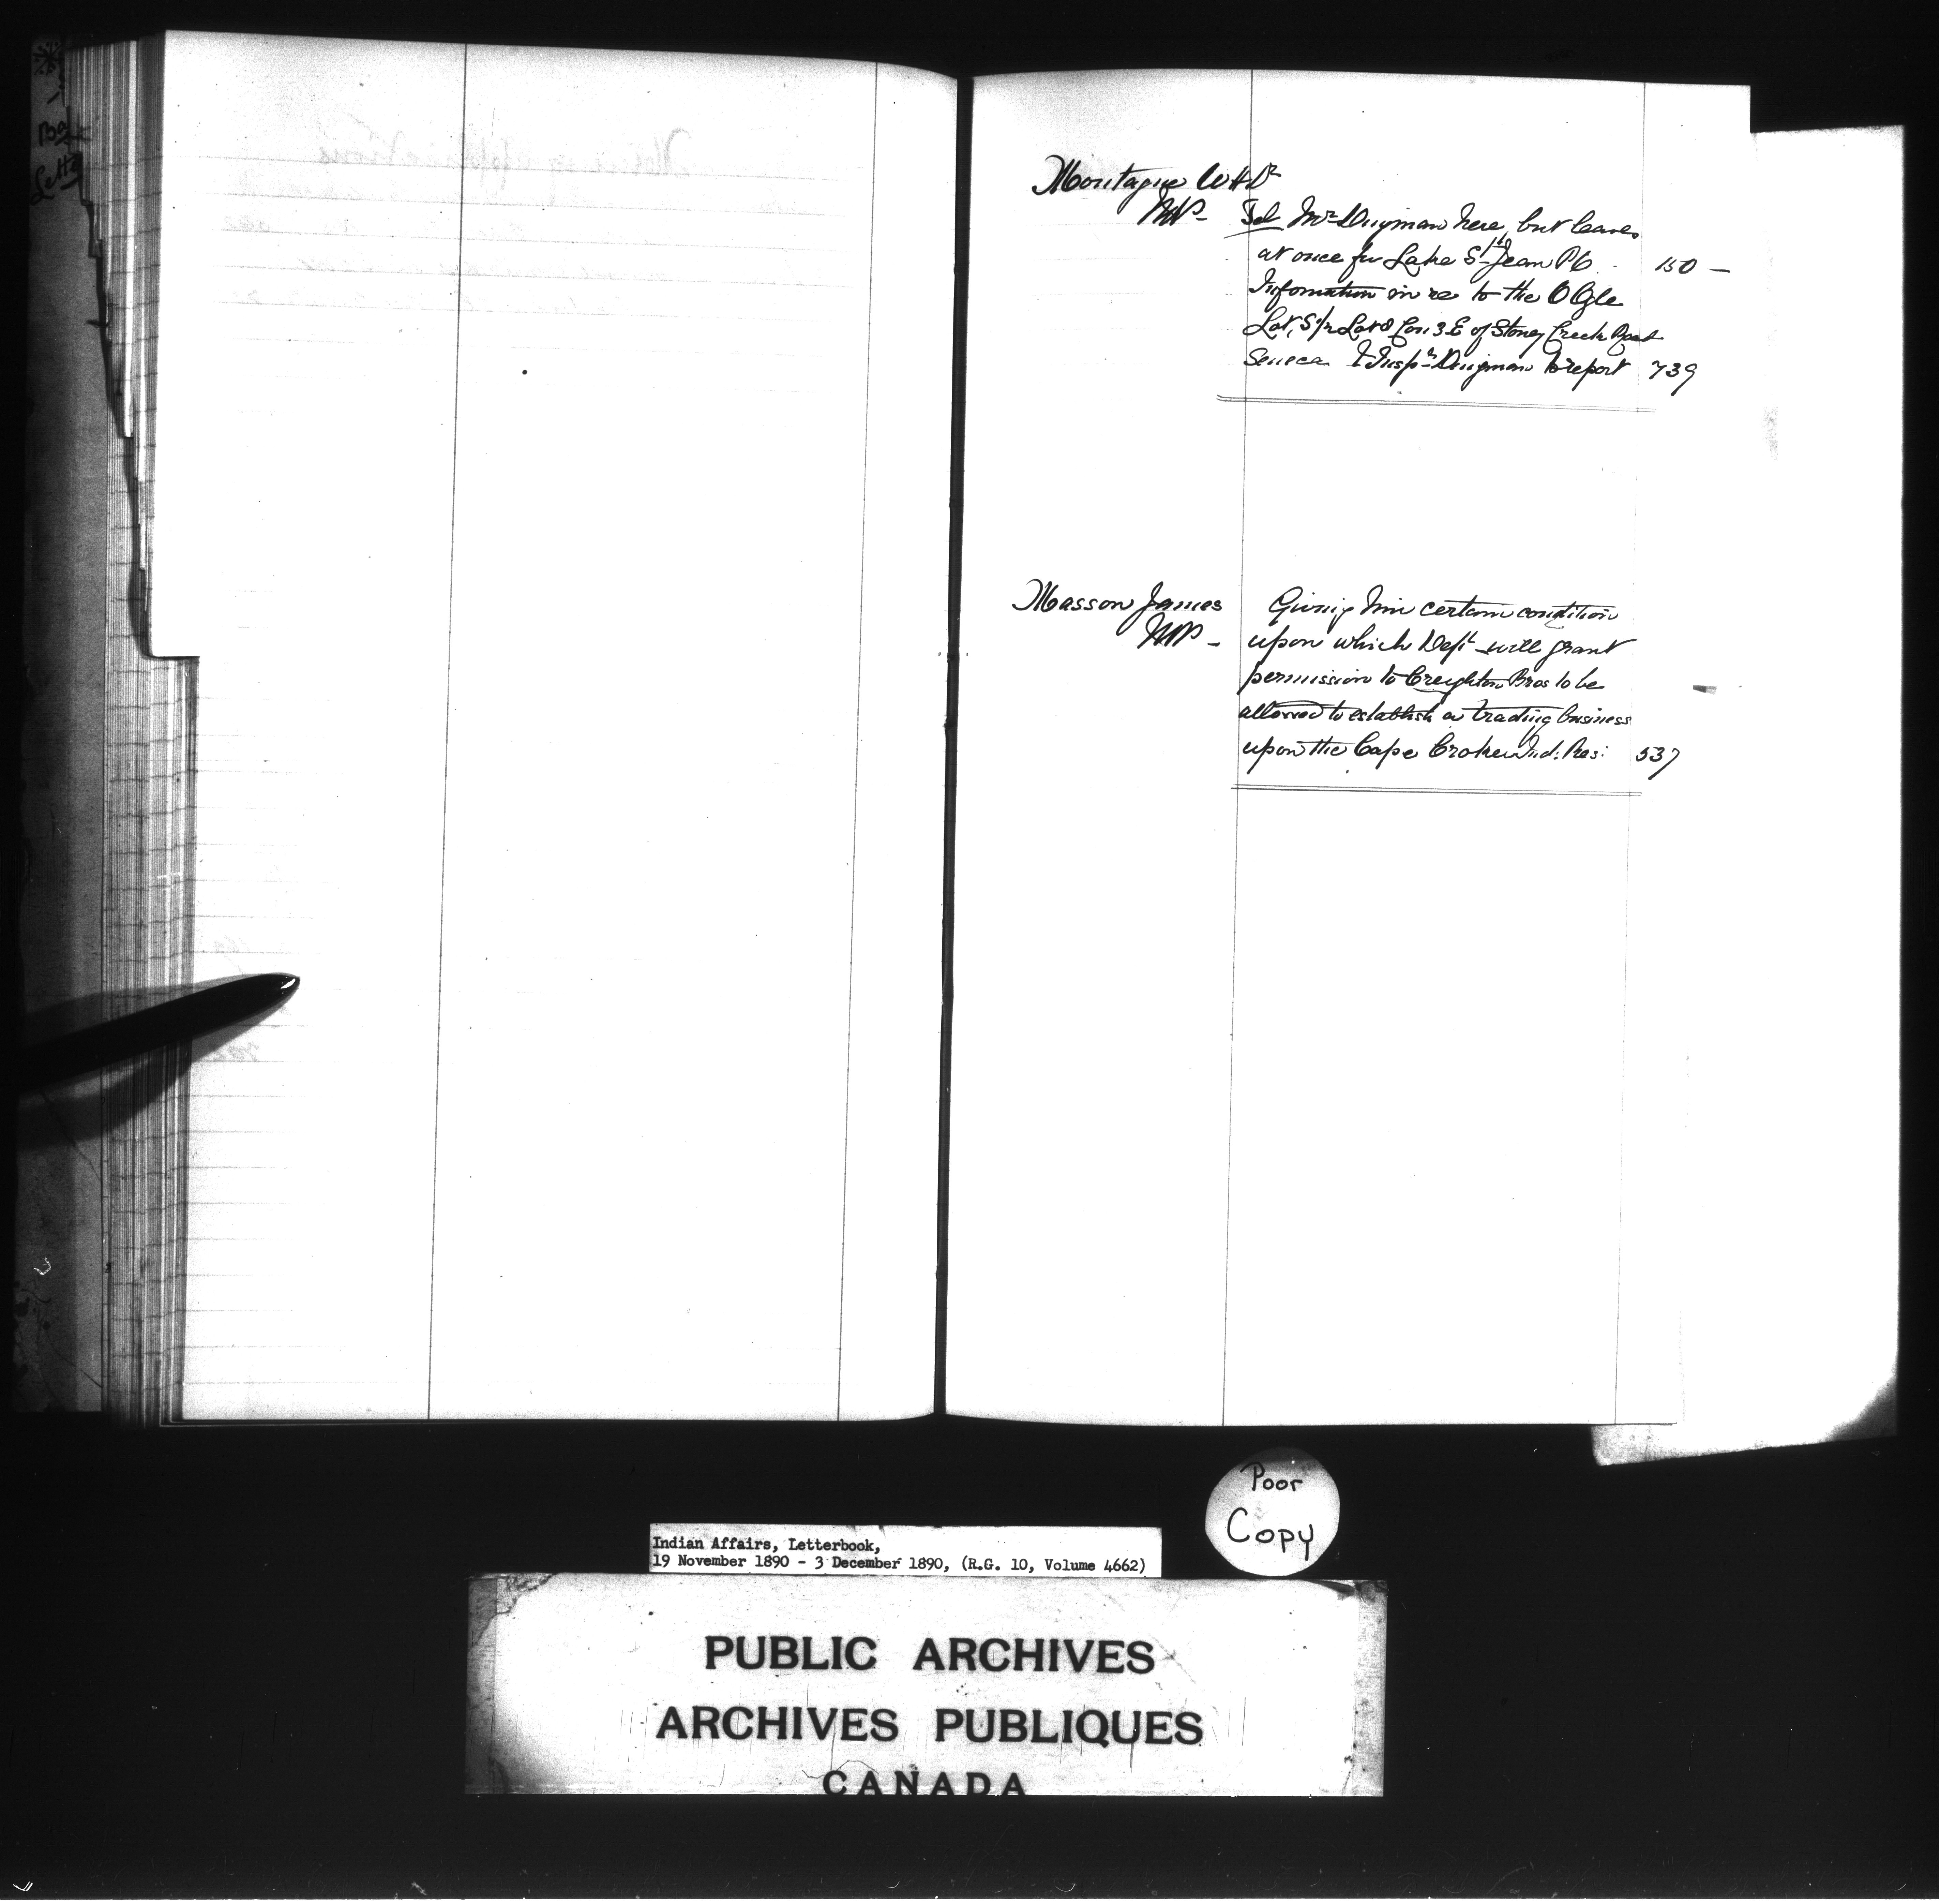 Montague W H Dr
MP - Tel Mr Dingman here, but leaves
at once for Lake St Jean PQ . 150 —
Information in re to the Ogle
Lot, S ½ Lot 8 Con 3 E of Stoney Creek Road
Seneca & Inspr Dingman to report 739
Masson James Giving him certain condition
MP - upon which Dept will grant
permission to Creighton Bros to be
allowed to establish a trading business
upon the Cape Croker Ind: Res: 537
Poor
Copy
Indian Affairs, Letterbook,
19 November 1890 - 3 December 1890, (R.G. 10, Volume 4662)
PUBLIC ARCHIVES
ARCHIVES PUBLIQUES
CANADA